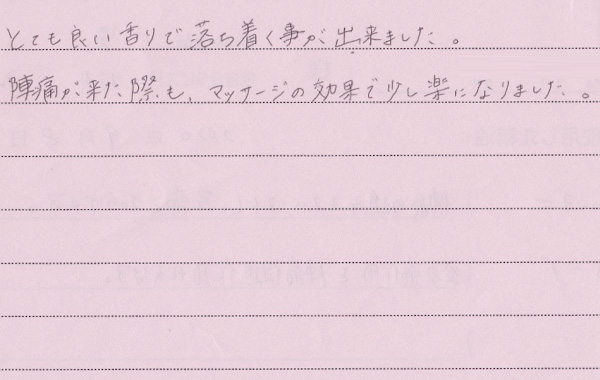 とても良い香りで落ち着く事が出来ました。
陣痛が来た際も、マッサージの効果で少し楽になりました。